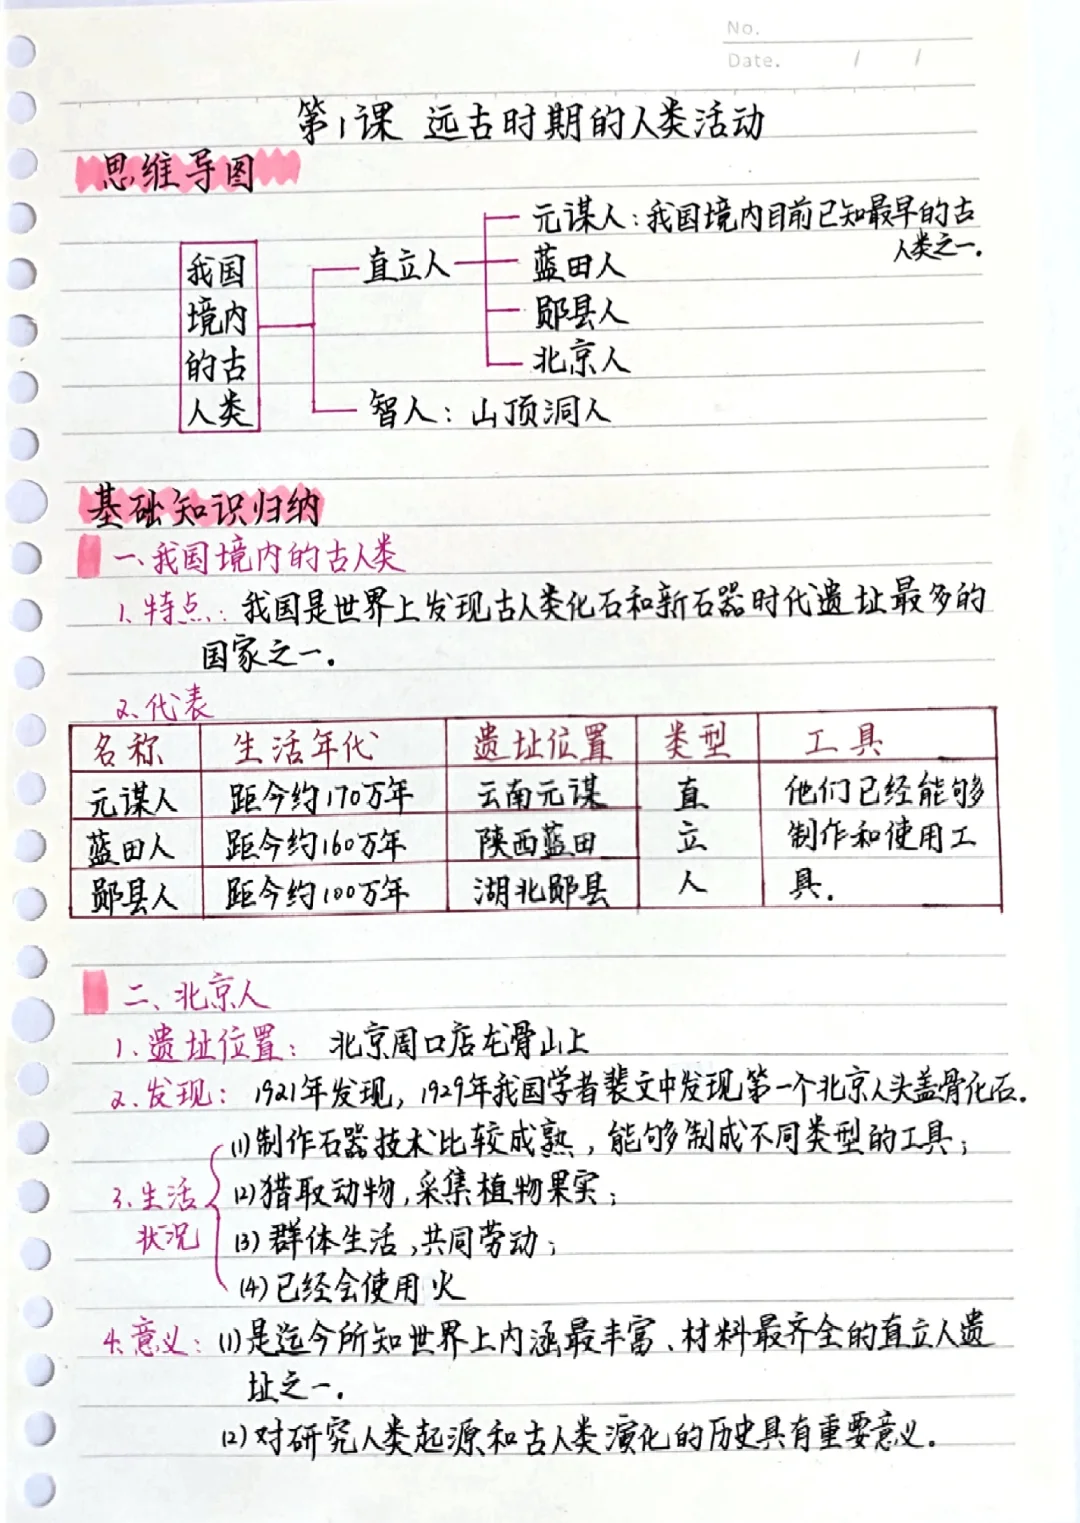 No.
Date. / /
第1课 远古时期的人类活动
思维导图
元谋人:我国境内目前已知最早的古
人类之一.
我国
境内
的古
人类
直立人
蓝田人
郧县人
北京人
智人:山顶洞人
基础知识归纳
一、我国境内的古人类
1.特点:我国是世界上发现古人类化石和新石器时代遗址最多的
国家之一.
2.代表
名称 生活年代 遗址位置 类型 工具
元谋人 距今约170万年 云南元谋 直 他们已经能够
蓝田人 距今约160万年 陕西蓝田 立 制作和使用工
郧县人 距今约100万年 湖北郧县 人 具.
二、北京人
1.遗址位置: 北京周口店龙骨山上
2.发现: 1921年发现,1929年我国学者裴文中发现第一个北京人头盖骨化石.
3.生活
状况
(1)制作石器技术比较成熟,能够制成不同类型的工具;
(2)猎取动物,采集植物果实;
(3)群体生活,共同劳动;
(4)已经会使用火
4.意义:(1)是迄今所知世界上内涵最丰富、材料最齐全的直立人遗
址之一.
(2)对研究人类起源和古人类演化的历史具有重要意义.